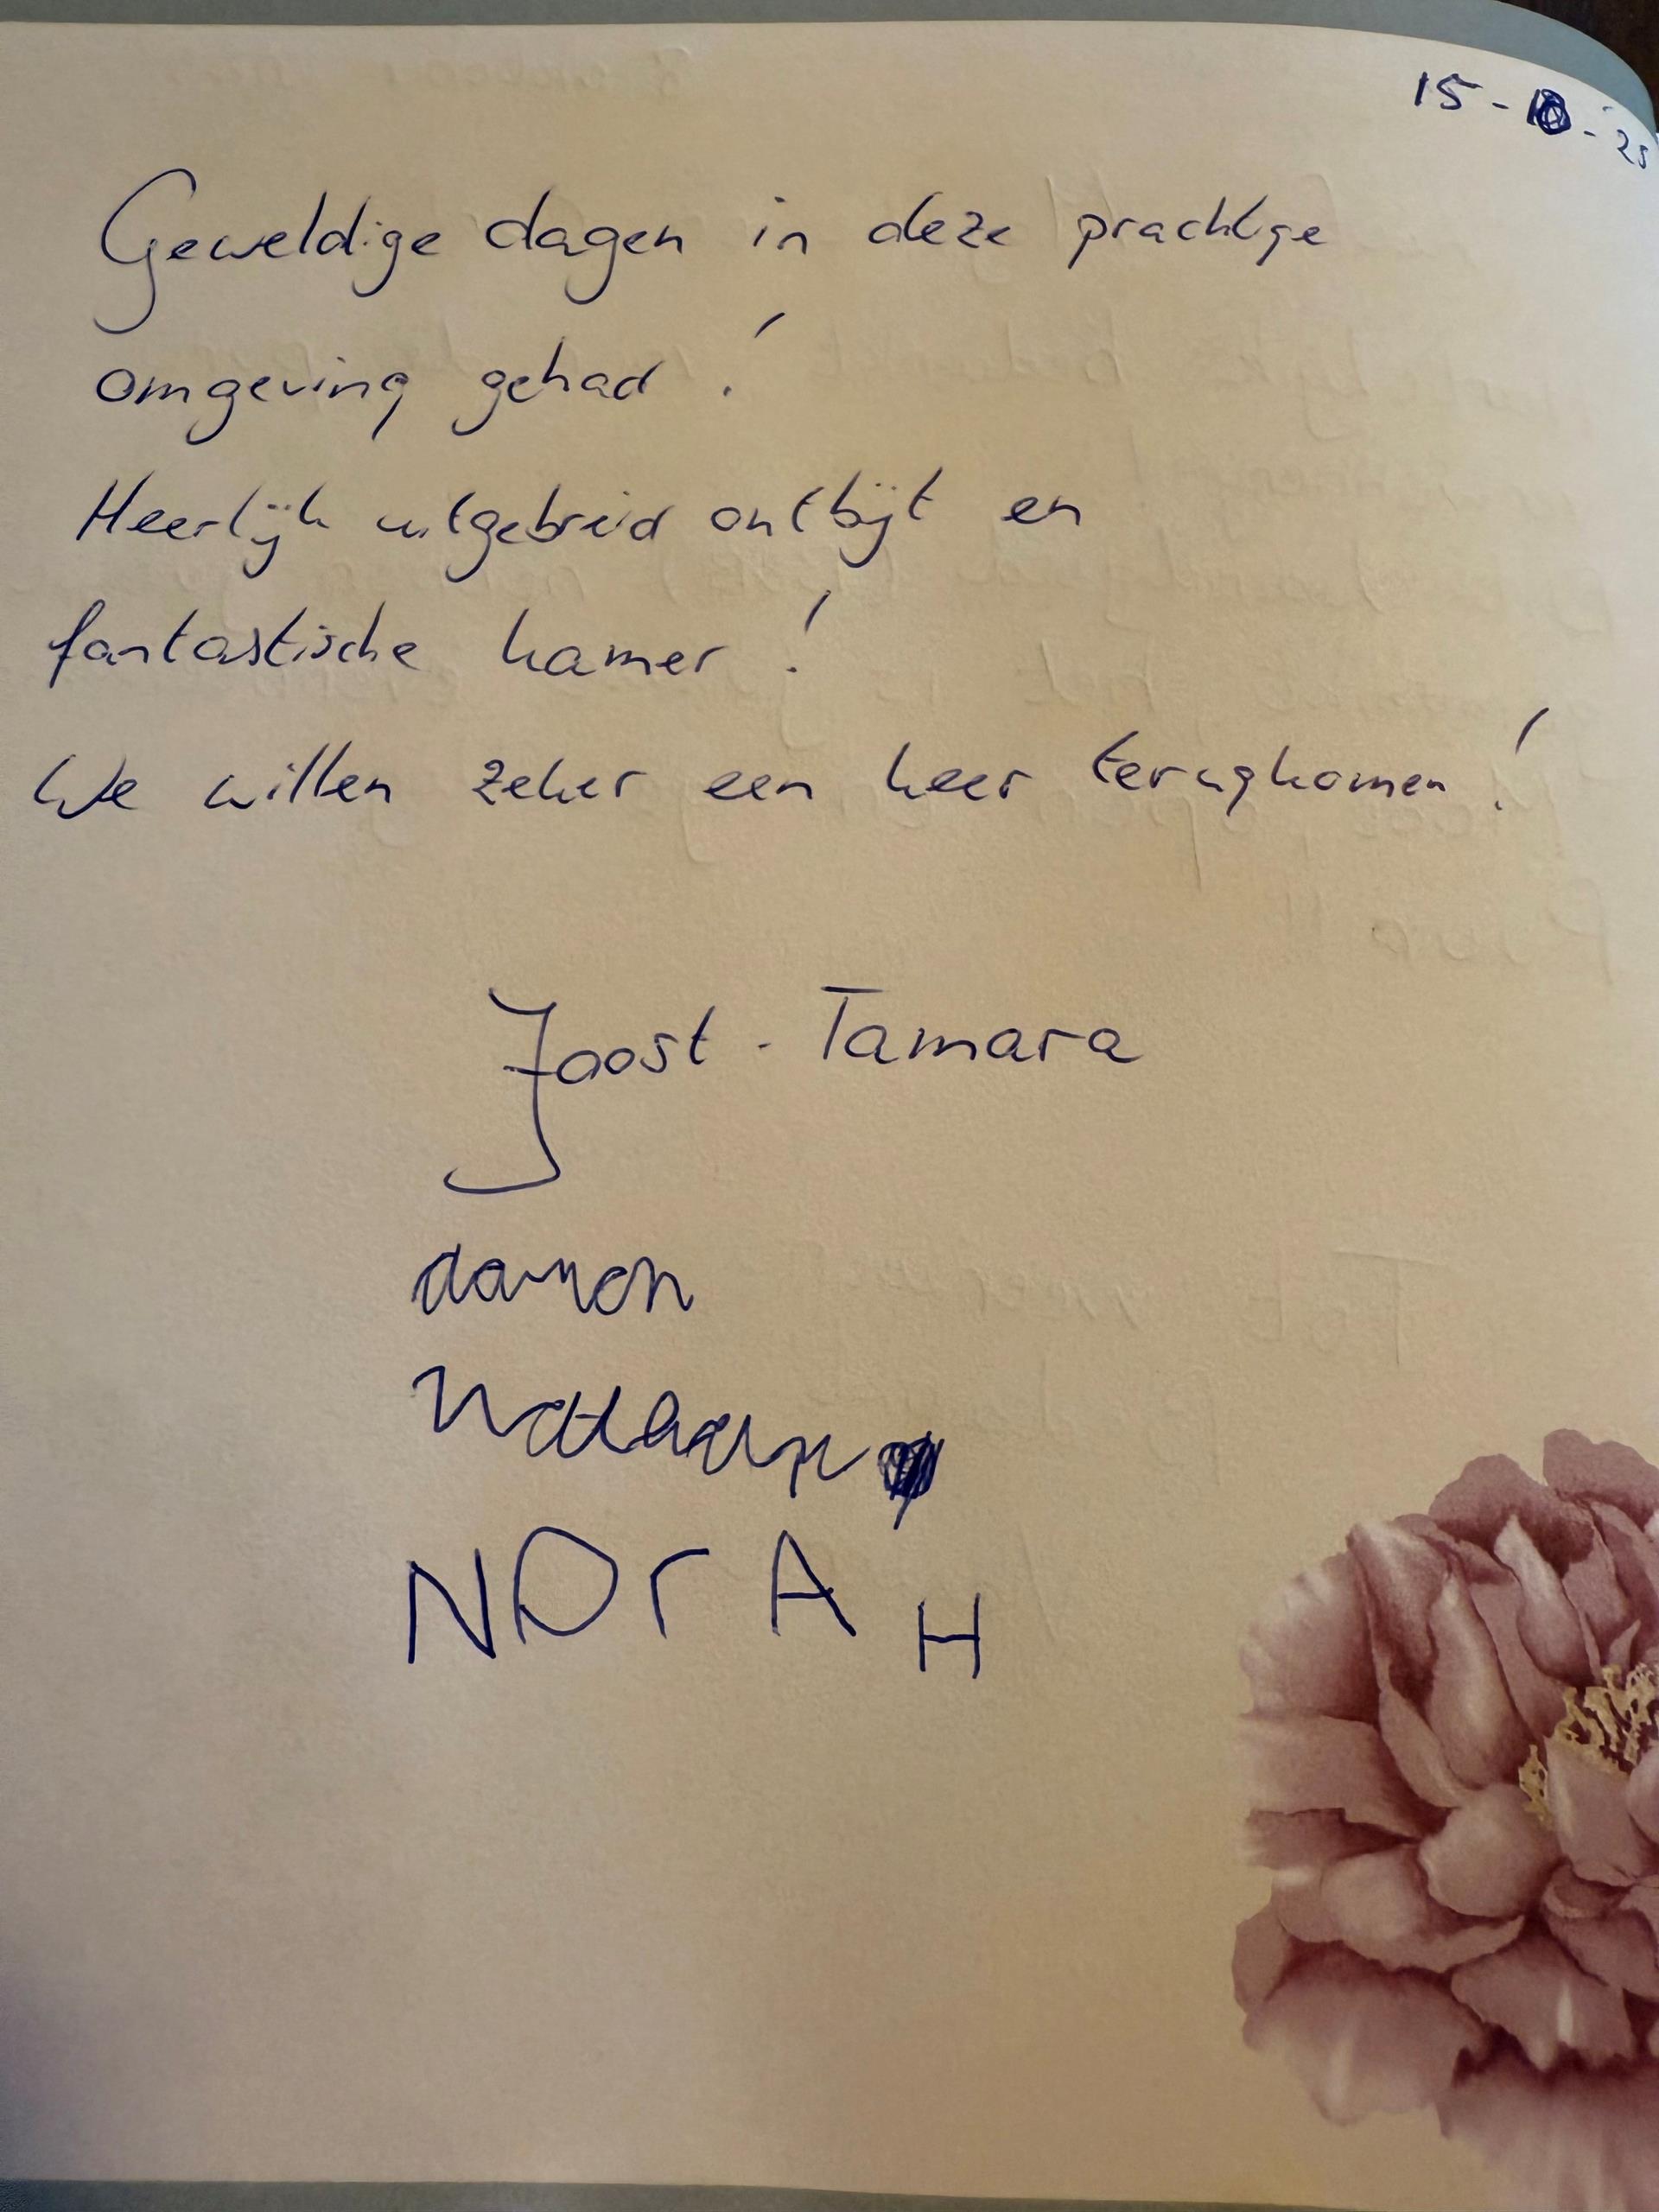 15-10-'25
Geweldige dagen in deze prachtige
omgeving gehad!
Heerlijk uitgebreid ontbijt en
fantastische kamer!
We willen zeker een keer terugkomen!
Joost - Tamara
damon
Nathan
NOrAH